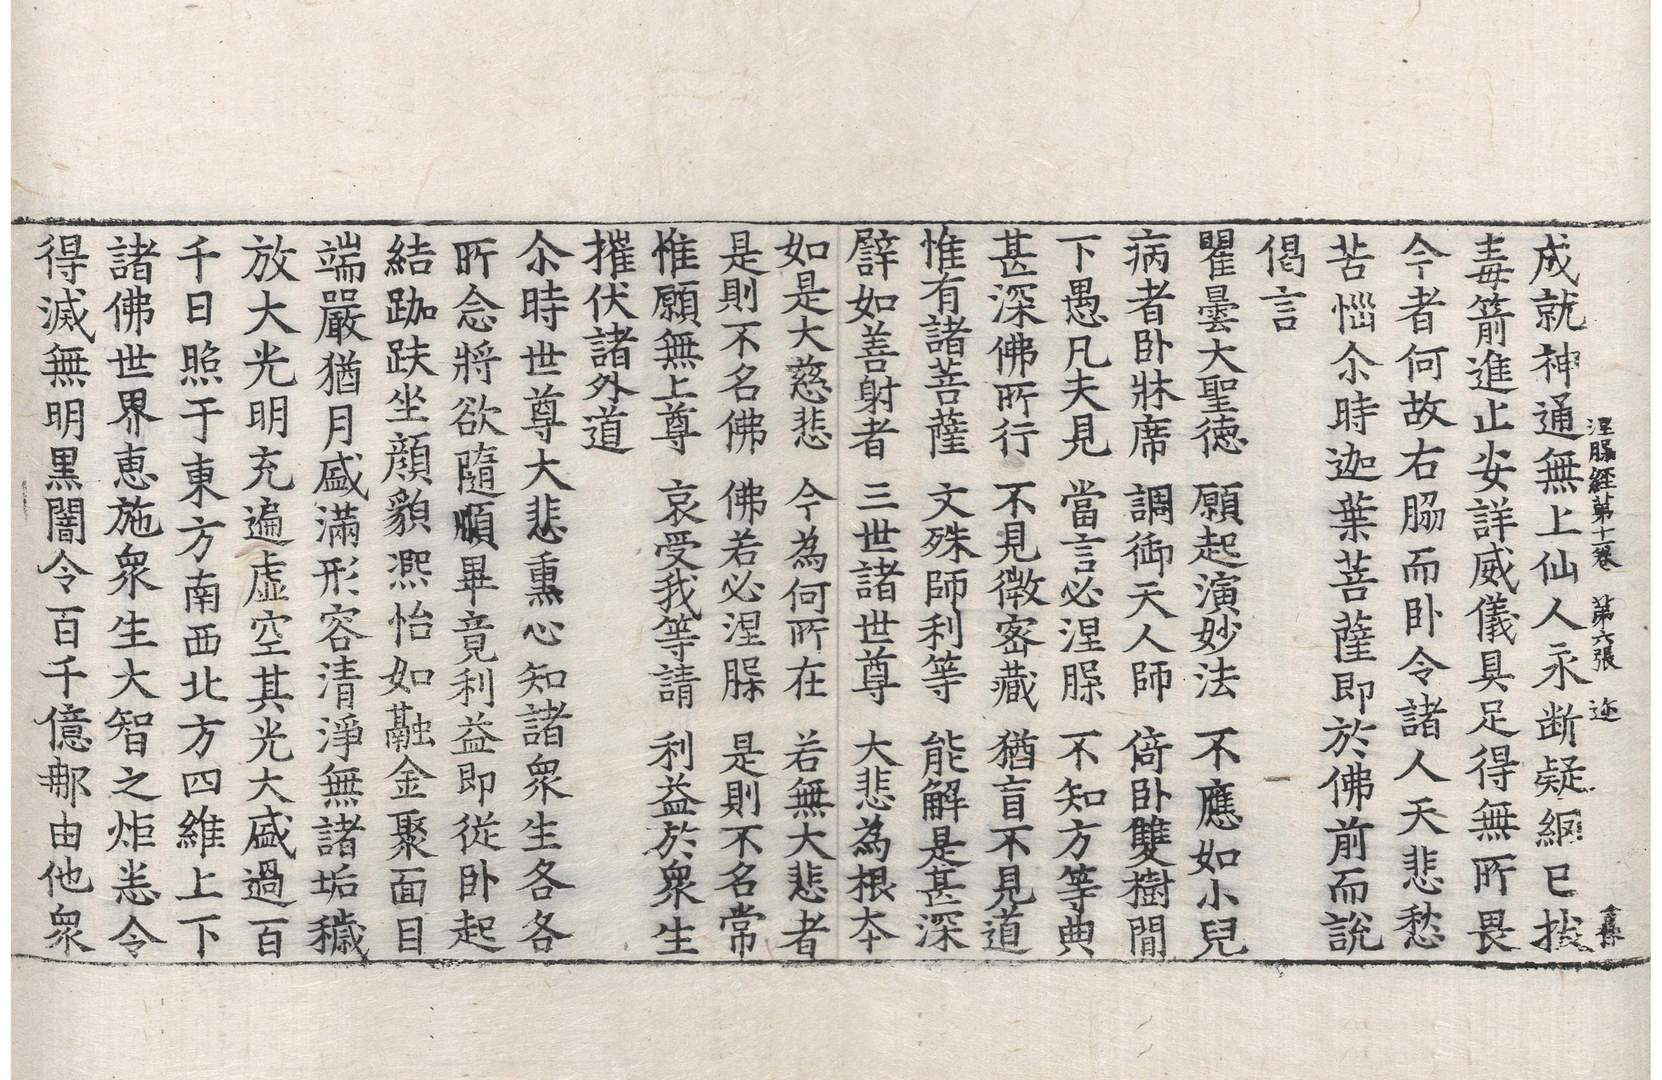 涅槃經第十一卷 第六張 迹
成就神通無上仙人永斷疑網已拔
毒箭進止安詳威儀具足得無所畏
今者何故右脇而卧令諸人天悲愁
苦惱尒時迦葉菩薩即於佛前而說
偈言
瞿曇大聖德 願起演妙法 不應如小兒
病者卧牀席 調御天人師 倚卧雙樹閒
下愚凡夫見 當言必涅槃 不知方等典
甚深佛所行 不見微密藏 猶盲不見道
惟有諸菩薩 文殊師利等 能解是甚深
譬如善射者 三世諸世尊 大悲為根本
如是大慈悲 今為何所在 若無大悲者
是則不名佛 佛若必涅槃 是則不名常
惟願無上尊 哀受我等請 利益於衆生
摧伏諸外道
尒時世尊大悲熏心知諸衆生各各
所念將欲隨順畢竟利益即從卧起
結跏趺坐顔貌熈怡如融金聚面目
端嚴猶月盛滿形容清淨無諸垢穢
放大光明充遍虚空其光大盛過百
千日照于東方南西北方四維上下
諸佛世界恵施衆生大智之炬悉令
得滅無明黒闇令百千億那由他衆